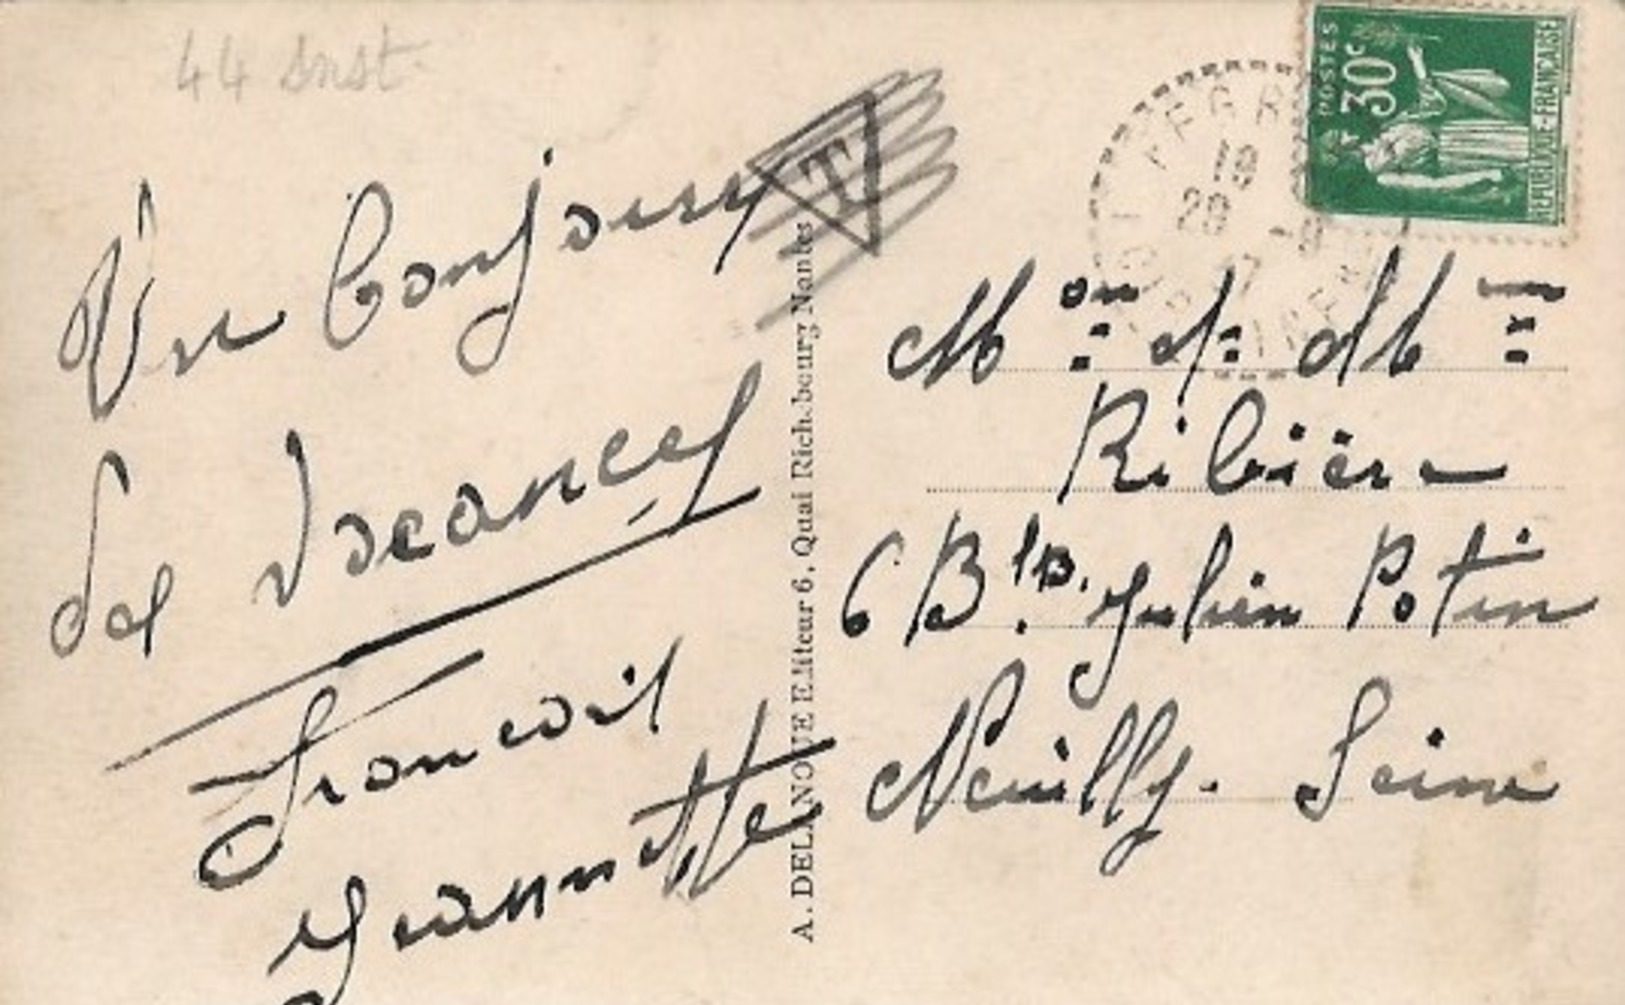 44 Inst
T
Un bonjour
des vacances
François
Jeannette
A. DELANOUE Editeur 6, Quai Richebourg Nantes
POSTES
30c
REPUBLIQUE-FRANÇAISE
19
28
Mon. & Me
Ribière
6 Bld. Julien Potin
Neuilly. Seine